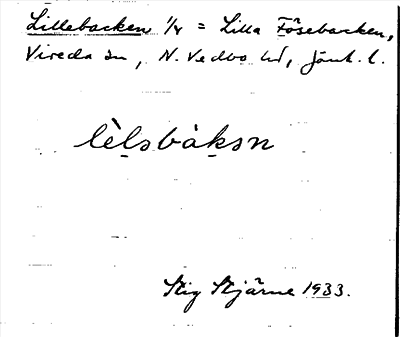 Lillebacken 1/4 = Lilla Fösebacken,
Vireda sn, N. Vedbo hd, Jönk. l.
lèlsbàksn
Stig Stjärne 1933.